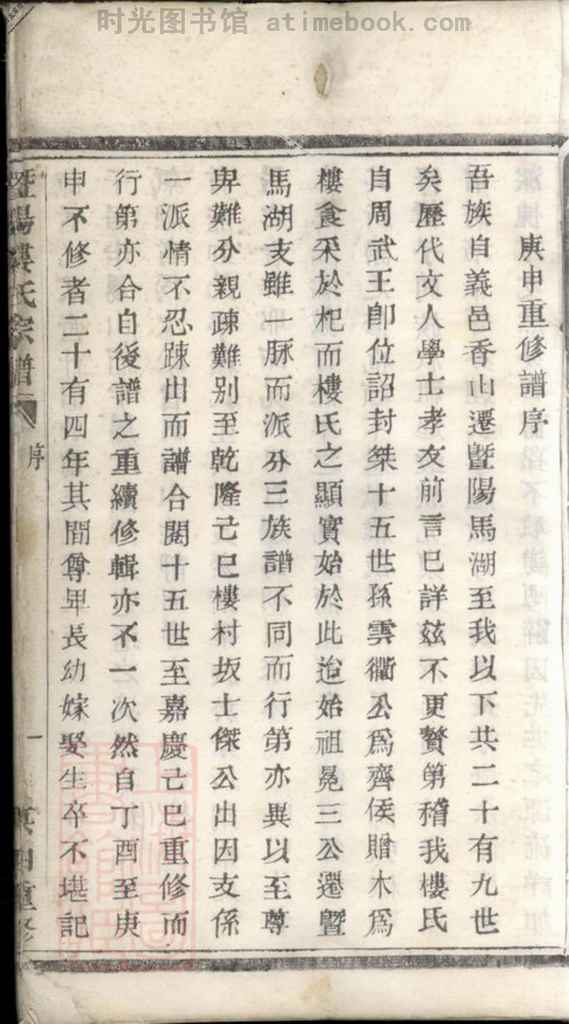 时光图书馆 atimebook.com
庚申重修譜序
吾族自義邑香山遷暨陽馬湖至我以下共二十有九世
矣歷代文人學士孝友前言已詳兹不更贅第稽我樓氏
自周武王卽位詔封桀十五世孫雲衢公爲齊侯贈木爲
樓食采於杞而樓氏之顯實始於此迨始祖晃三公遷暨
馬湖支雖一脉而派分三族譜不同而行第亦異以至尊
卑難分親疎難别至乾隆己巳樓村坂士傑公出因支係
一派情不忍踈出而譜合閱十五世至嘉慶己巳重修而
行第亦合自後譜之重續修輯亦不一次然自丁酉至庚
申不修者二十有四年其間尊卑長幼嫁娶生卒不堪記
暨陽婁氏宗譜
序
一